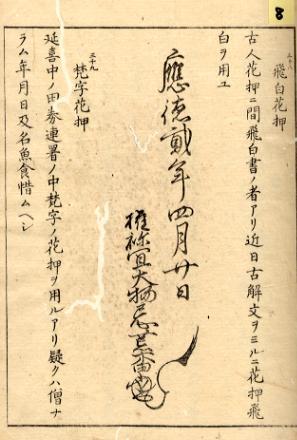 8
三十八
飛白花押
古人花押ニ間飛白書ノ者アリ近日古解文ヲミルニ花押飛
白ヲ用ユ
應徳貳年四月廿日
權祢宜大物忌
三十九
梵字花押
延喜中ノ田券連署ノ中梵字ノ花押ヲ用ルアリ疑クハ僧ナ
ラム年月日及名魚食惜ムヘシ